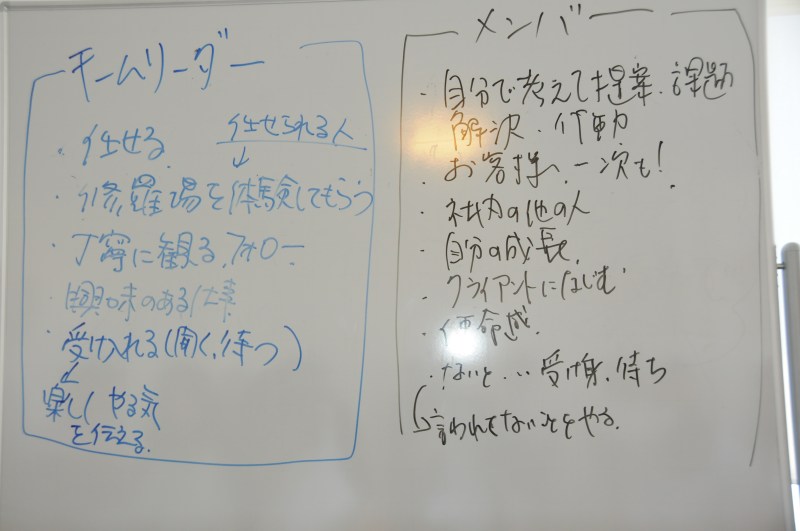 チームリーダー
・任せる 任せられる人
↓
・修羅場を体験してもらう
・丁寧に観る、フォロー
興味のある仕事
・受け入れる(聞く、待つ)
↓
楽しく やる気
を伝える。
メンバー
・自分で考えて提案、課題
解決・行動
・お客様へ、一次も!
・社内の他の人
・自分の成長
・クライアントになじむ
・使命感
・ないと… 受け身、待ち
言われてないことをやる。